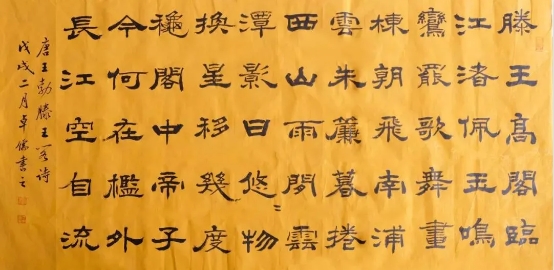 滕王高閣臨
江渚佩玉鳴
鸞罷歌舞畫
棟朝飛南浦
雲朱簾暮捲
西山雨閒雲
潭影日悠々物
換星移幾度
穐閣中帝子
今何在檻外
長江空自流
唐王勃滕王阁诗
戊戌二月卓書之